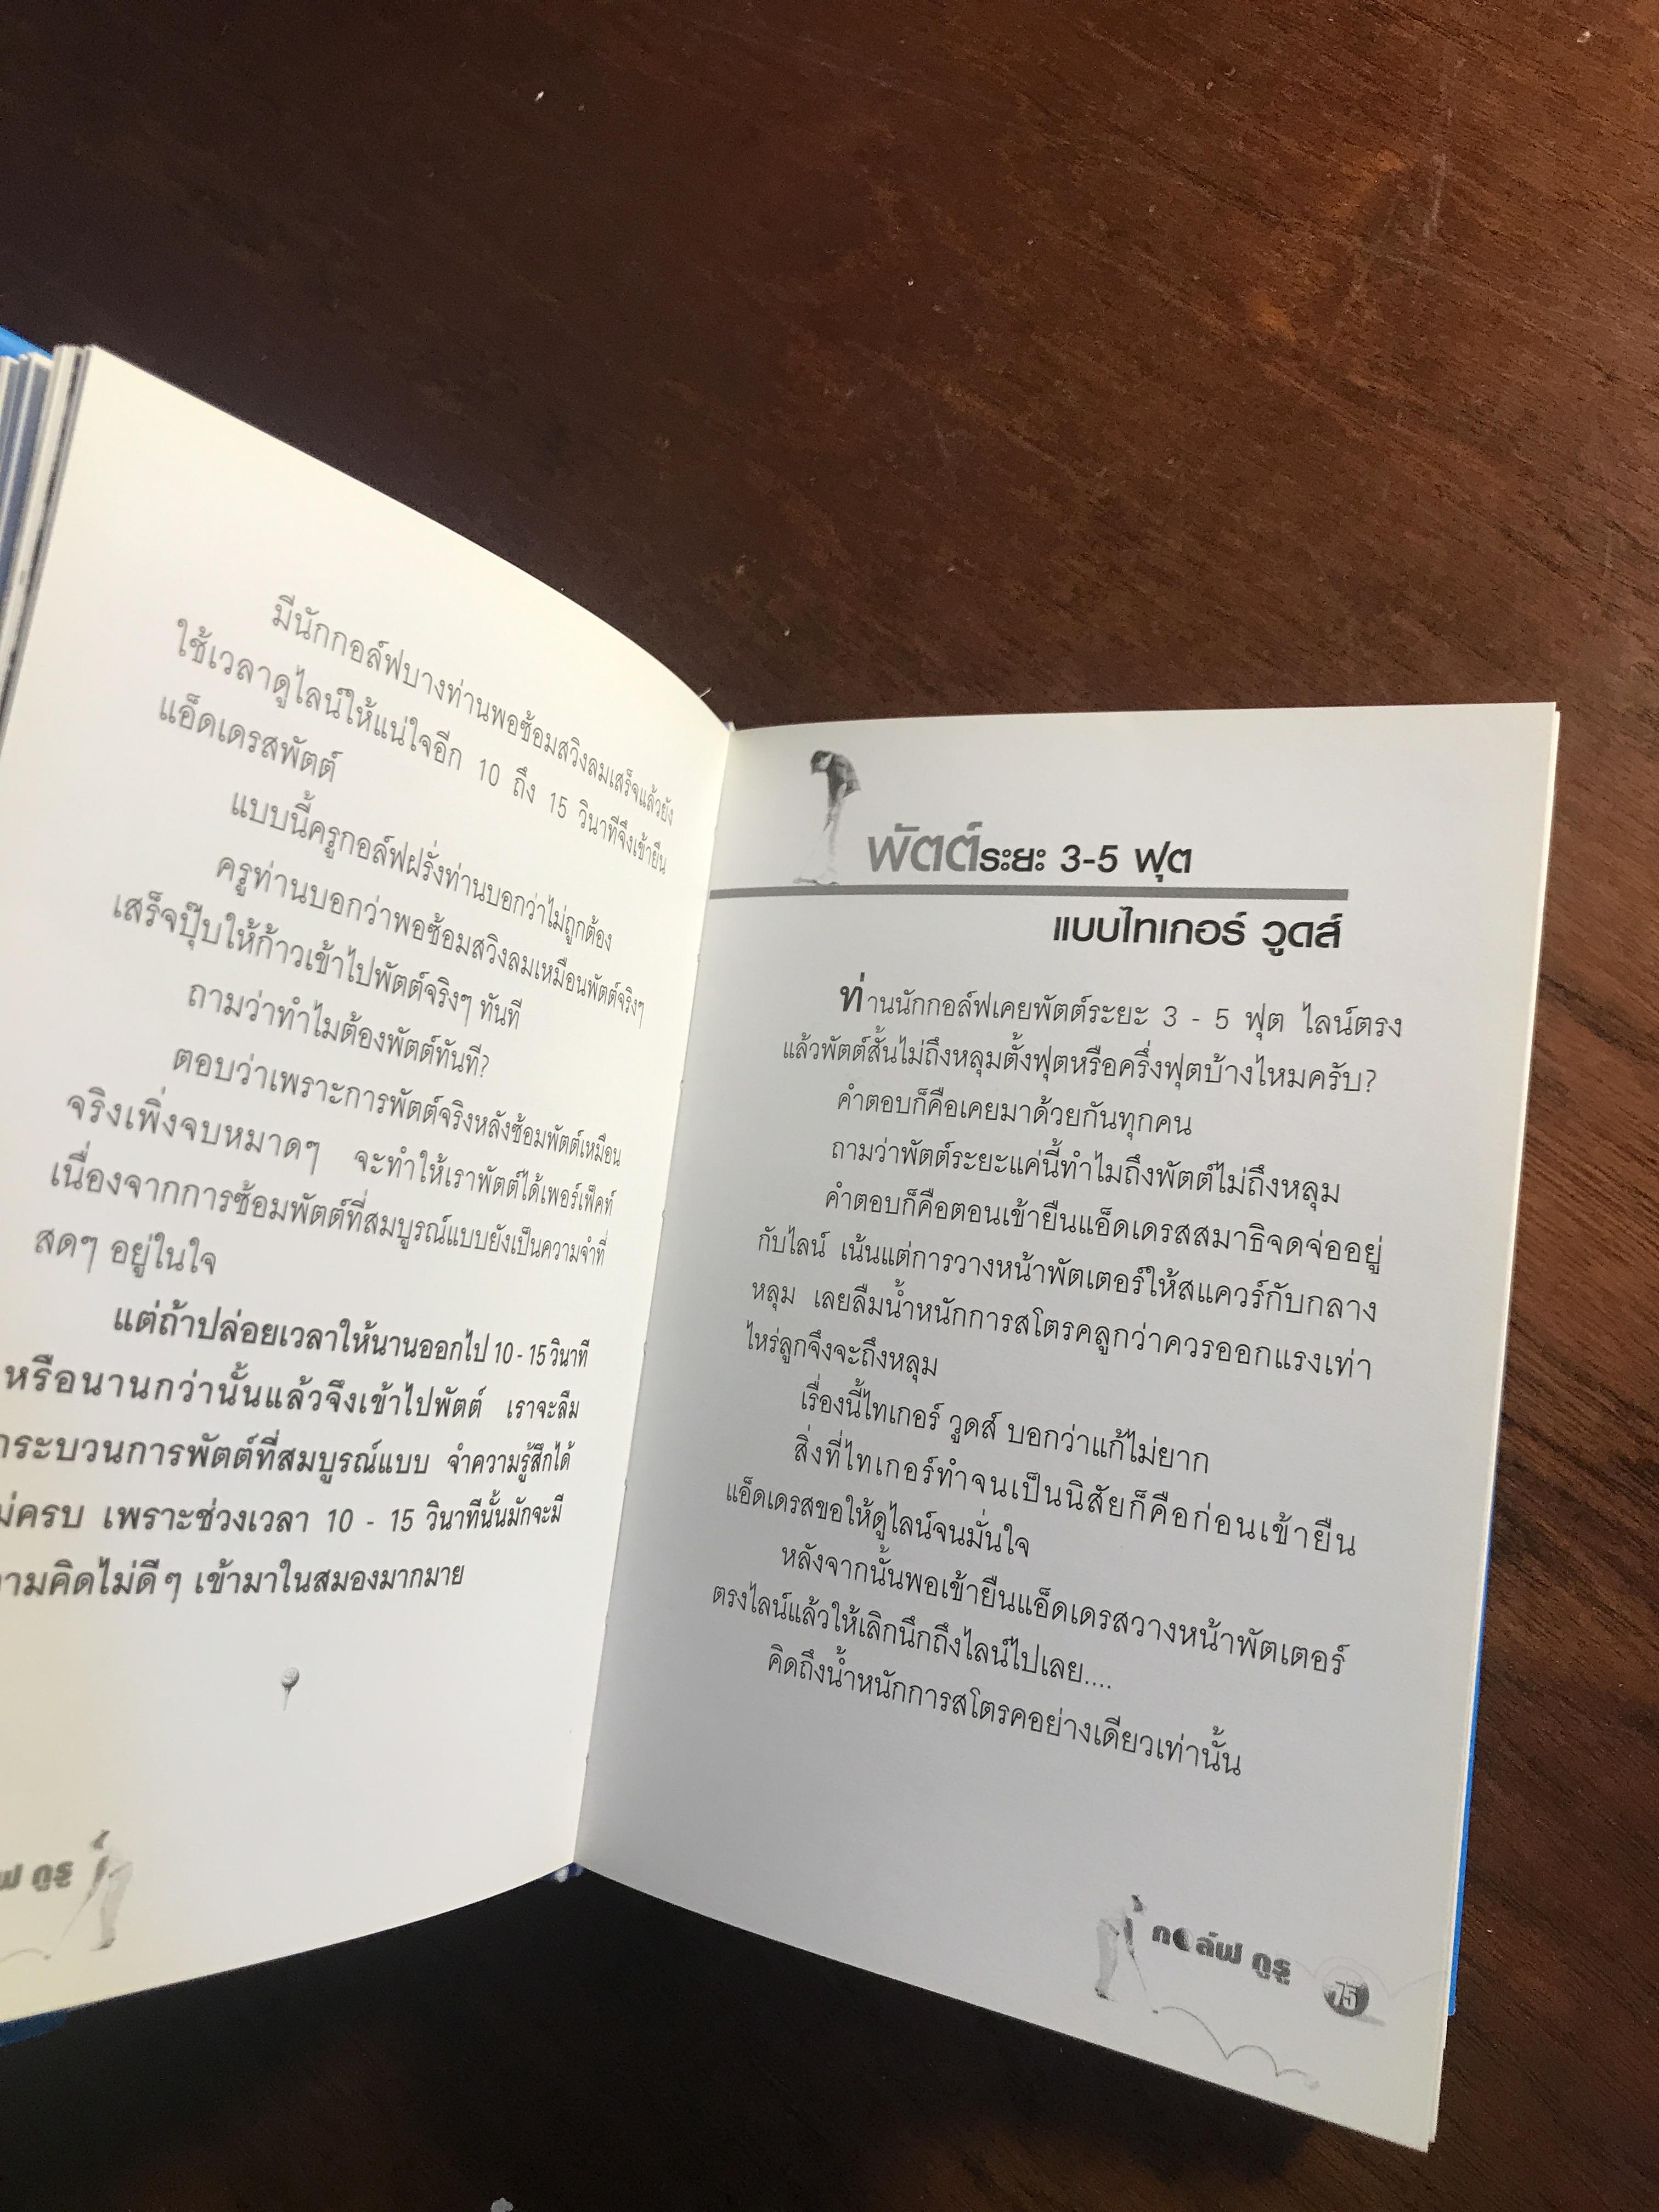 มีนักกอล์ฟบางท่านพอซ้อมสวิงลมเสร็จแล้วยัง
ใช้เวลาดูไลน์ให้แน่ใจอีก 10 ถึง 15 วินาทีจึงเข้ายืน
แอ็ดเดรสพัตต์
แบบนี้ครูกอล์ฟฝรั่งท่านบอกว่าไม่ถูกต้อง
ครูท่านบอกว่าพอซ้อมสวิงลมเหมือนพัตต์จริงๆ
เสร็จปุ๊บให้ก้าวเข้าไปพัตต์จริงๆ ทันที
ถามว่าทำไมต้องพัตต์ทันที?
ตอบว่าเพราะการพัตต์จริงหลังซ้อมพัตต์เหมือน
จริงเพิ่งจบหมาดๆ จะทำให้เราพัตต์ได้เพอร์เฟ็คท์
เนื่องจากการซ้อมพัตต์ที่สมบูรณ์แบบยังเป็นความจำที่
สดๆ อยู่ในใจ
แต่ถ้าปล่อยเวลาให้นานออกไป 10 - 15 วินาที
หรือนานกว่านั้นแล้วจึงเข้าไปพัตต์ เราจะลืม
กระบวนการพัตต์ที่สมบูรณ์แบบ จำความรู้สึกได้
ม่ครบ เพราะช่วงเวลา 10 - 15 วินาทีนั้นมักจะมี
ามคิดไม่ดีๆ เข้ามาในสมองมากมาย
ฟ กูรู
พัตต์ระยะ 3-5 ฟุต
แบบไทเกอร์ วูดส์
ท่านนักกอล์ฟเคยพัตต์ระยะ 3 - 5 ฟุต ไลน์ตรง
แล้วพัตต์สั้นไม่ถึงหลุมตั้งฟุตหรือครึ่งฟุตบ้างไหมครับ?
คำตอบก็คือเคยมาด้วยกันทุกคน
ถามว่าพัตต์ระยะแค่นี้ทำไมถึงพัตต์ไม่ถึงหลุม
คำตอบก็คือตอนเข้ายืนแอ็ดเดรสสมาธิจดจ่ออยู่
กับไลน์ เน้นแต่การวางหน้าพัตเตอร์ให้สแควร์กับกลาง
หลุม เลยลืมน้ำหนักการสโตรคลูกว่าควรออกแรงเท่า
ไหร่ลูกจึงจะถึงหลุม
เรื่องนี้ไทเกอร์ วูดส์ บอกว่าแก้ไม่ยาก
สิ่งที่ไทเกอร์ทำจนเป็นนิสัยก็คือก่อนเข้ายืน
แอ็ดเดรสขอให้ดูไลน์จนมั่นใจ
หลังจากนั้นพอเข้ายืนแอ็ดเดรสวางหน้าพัตเตอร์
ตรงไลน์แล้วให้เลิกนึกถึงไลน์ไปเลย....
คิดถึงน้ำหนักการสโตรคอย่างเดียวเท่านั้น
กอล์ฟ กูรู 75